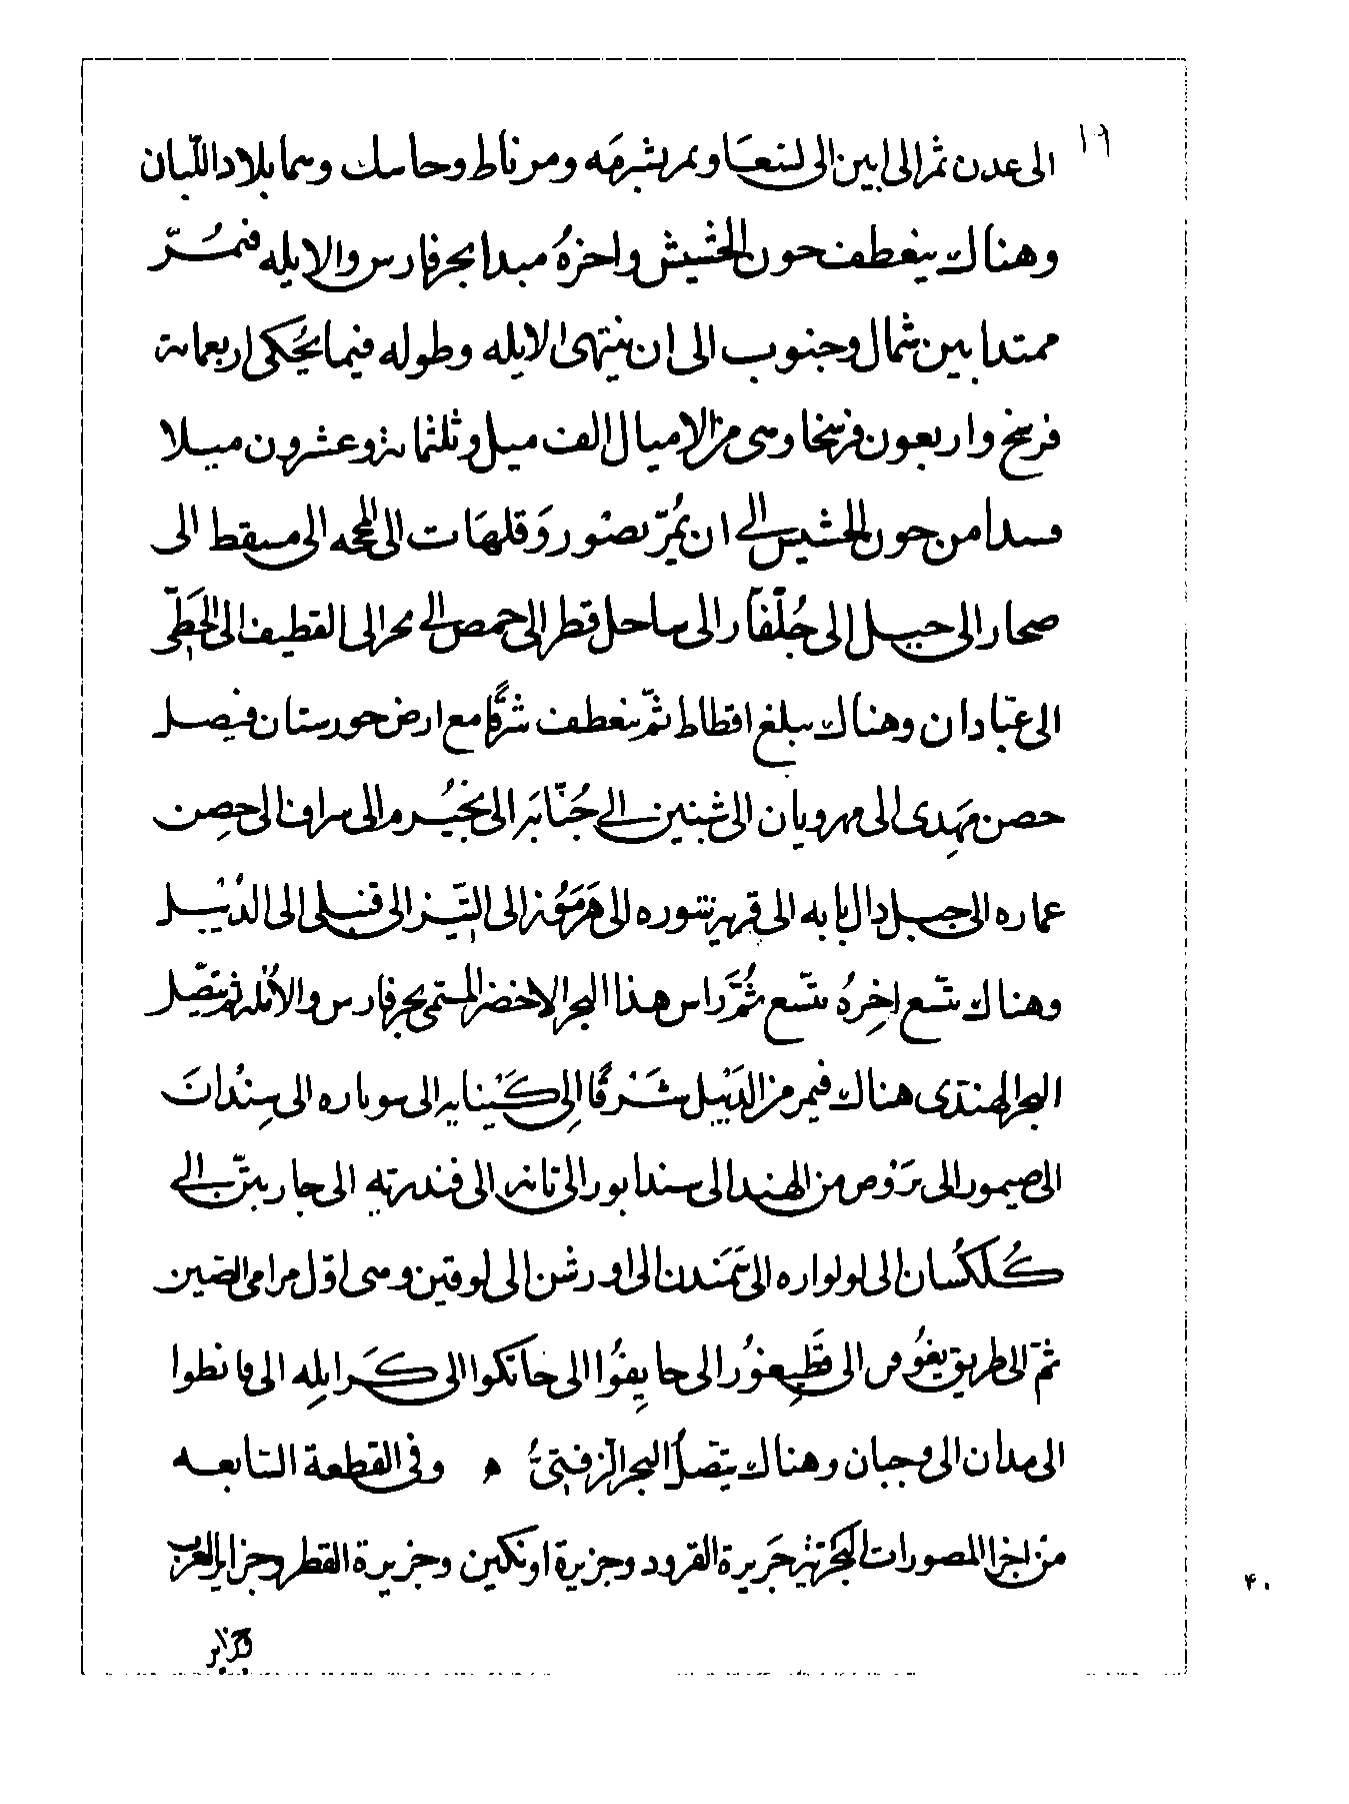 ١٩
الى عدن ثم الى ابين الى لسعا ويمر بشرمه ومرباط وحاسك وهما بلاد اللبان
وهناك ينعطف جون الحشيش واخرهُ مبدا بحر فارس والابله فيمُرّ
ممتدا بين شمال وجنوب الى ان ينتهى الابله وطوله فيما يُحكى اربعمائة
فرسخ واربعون فرسخا وهى من الاميال الف ميل وثلثمائة وعشرون ميلا
ويبدا من جون الحشيش الى ان يمُرّ بصُور وَقلهَات الى المجمه الى مسقط الى
صحار الى جبيل الى جُلّفار الى ساحل قطر الى حمص الى هجر الى القطيف الى الخَطّى
الى عبّادان وهناك يبلغ اقطاط ثمّ ينعطف شرقًا مع ارض خورستان فيصل
حصن مَهدى الى مهرويان الى شينين الى جُنّابَه الى نجيُرم الى سيراف الى حصِن
عماره الى جبل دال بابه الى قهر بنشوره الى هَرمُوز الى التيّز الى قنبلى الى الدُيبُل
وهناك يتّسع اخِرهُ يتّسع ثُمَّ راس هذا البحر الاخضر المسّمى بحر فارس والاُبله ثم يتصّل
البحر الهندى هناك فيمر من الدَيْبل شَرقًا الِى كَيْنبايه الى سوباره الى سِندُان
الى صيمور الى برَوْص من الهند الى سندابور الى تانه الى فندريه الى جاربتن الى
كُلكسُان الى لولواره الى سَمَندن الى اورشن الى لوقين وهى اوّل مرامى الصّين
ثمّ الى طريق يغُوص الى قَطِيغُور الى جابِغُوا الى خانكوا الى كَرابِله الى قانطوا
الى مدان الى وجبان وهناك يتصّلُ البحر الزفتىُّ ه وفى القطعة السّابعه
من اجزا المصورات البحريّة جَزيرة القرود وجزيرة اونكين وجزيرة القطر وجزاير العرب
جزاير
۴۰